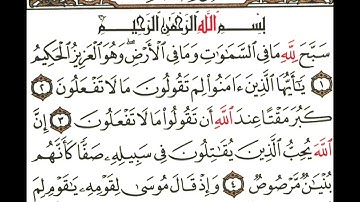 بِسْمِ ٱللَّهِ ٱلرَّحْمَٰنِ ٱلرَّحِيمِ
سَبَّحَ لِلَّهِ مَا فِى ٱلسَّمَٰوَٰتِ وَمَا فِى ٱلْأَرْضِ ۖ وَهُوَ ٱلْعَزِيزُ ٱلْحَكِيمُ
١ يَٰٓأَيُّهَا ٱلَّذِينَ ءَامَنُوا۟ لِمَ تَقُولُونَ مَا لَا تَفْعَلُونَ ٢
كَبُرَ مَقْتًا عِندَ ٱللَّهِ أَن تَقُولُوا۟ مَا لَا تَفْعَلُونَ ٣ إِنَّ
ٱللَّهَ يُحِبُّ ٱلَّذِينَ يُقَٰتِلُونَ فِى سَبِيلِهِۦ صَفًّا كَأَنَّهُم
بُنْيَٰنٌ مَّرْصُوصٌ ٤ وَإِذْ قَالَ مُوسَىٰ لِقَوْمِهِۦ يَٰقَوْمِ لِمَ